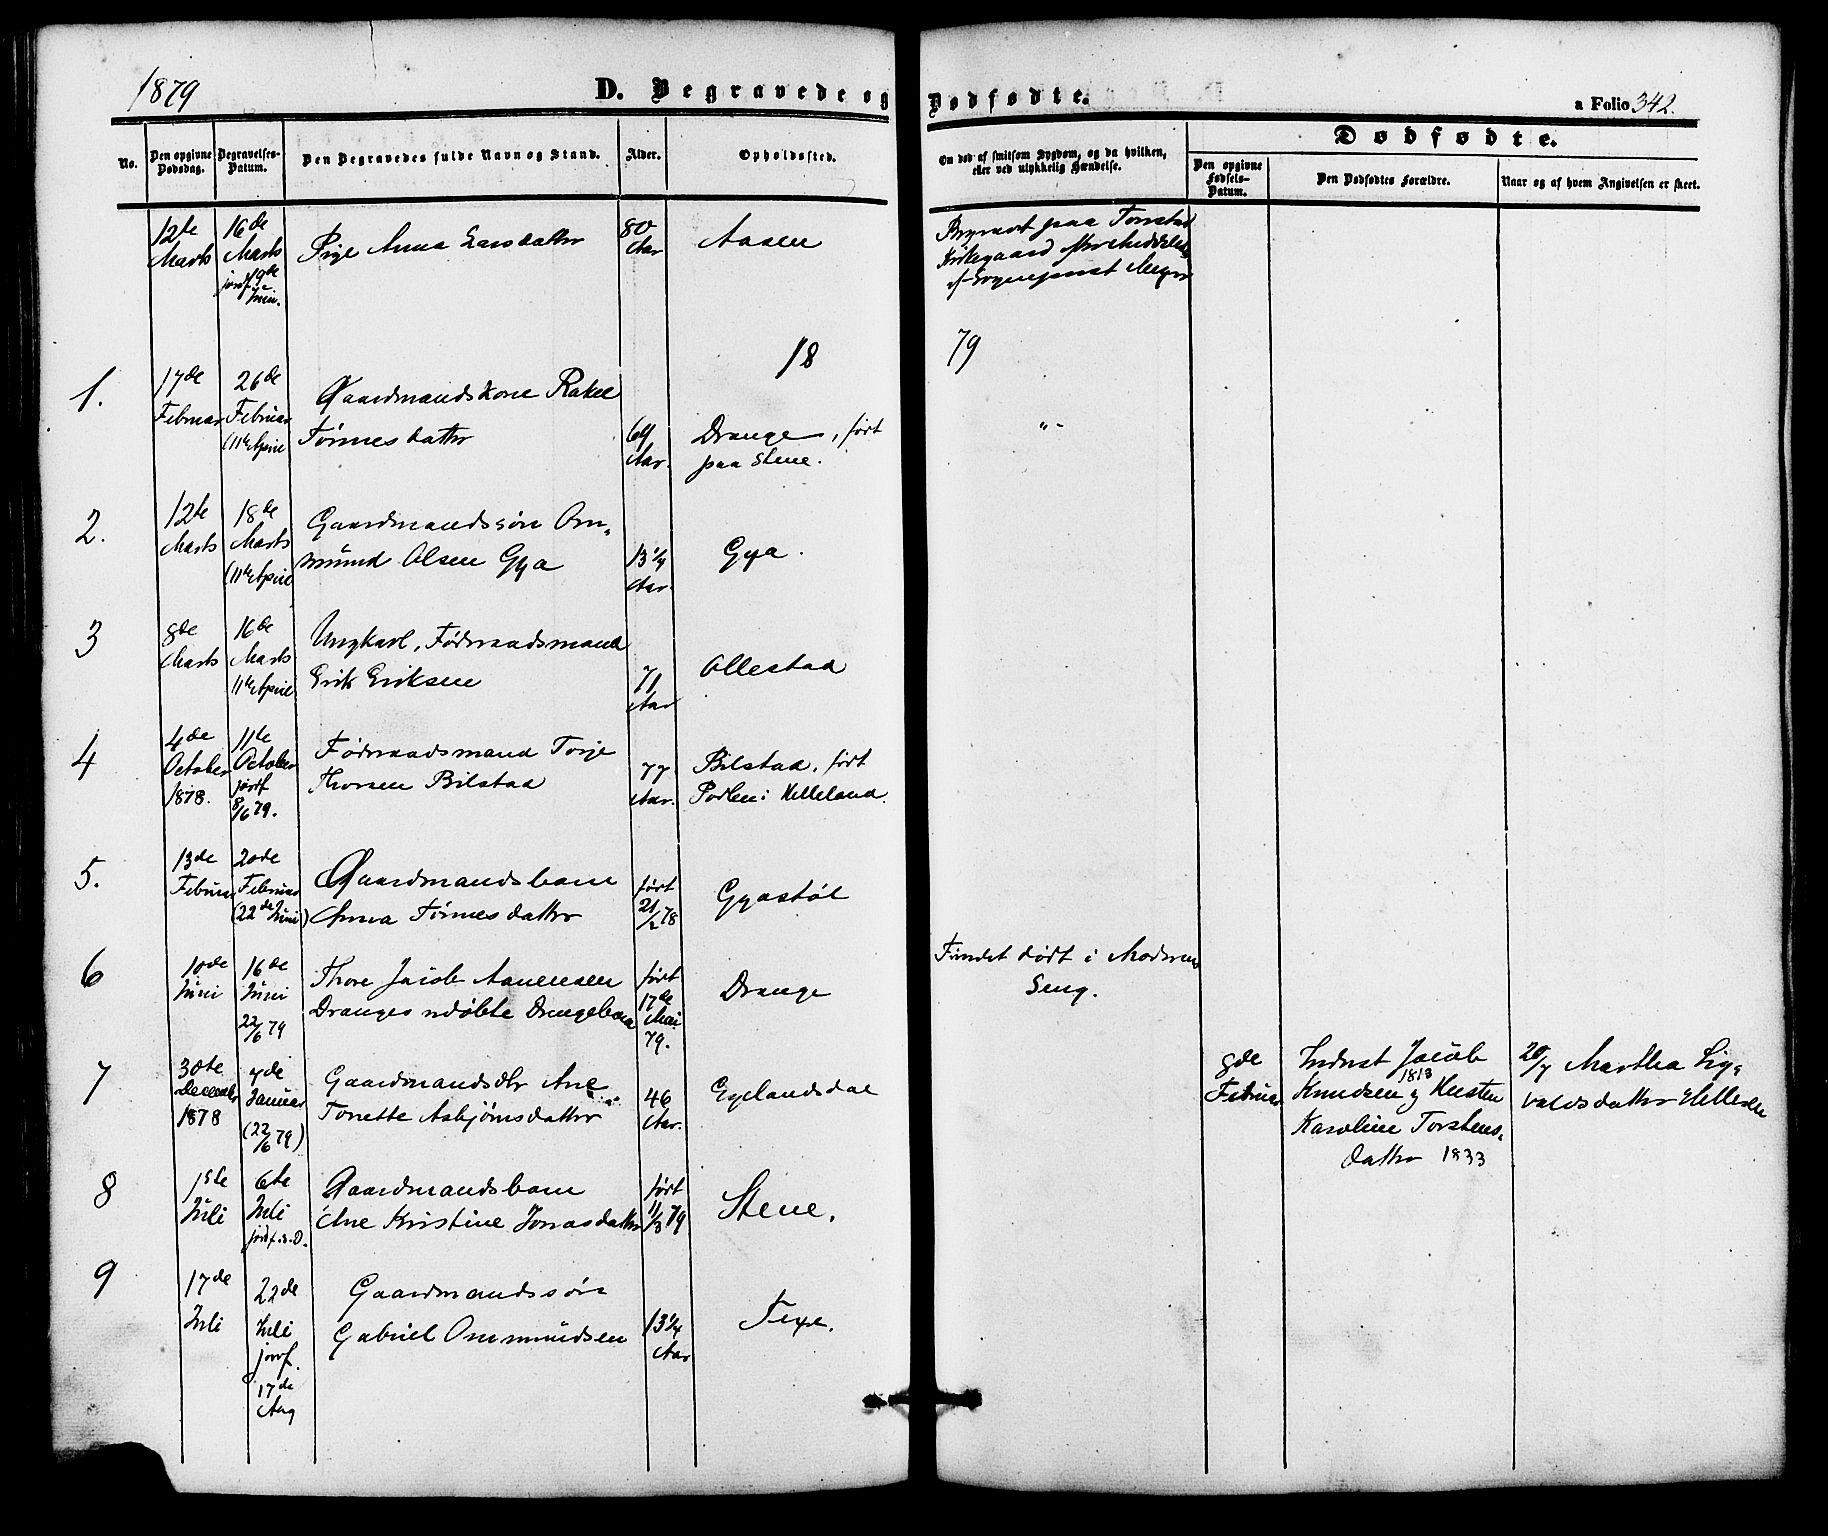 1879
D. Begravede og Dødfødte.
a Folio 342.
No.
Den opgivne Dødsdag.
Begravelses-Datum.
Den Begravedes fulde Navn og Stand.
Alder.
Opholdssted.
Om død af smitsom Sygdom, og da hvilken,
eller ved ulykkelig Hændelse.
Dødfødte.
Den opgivne Fødsels-Datum.
Den Dødfødtes Forældre.
Naar og af hvem Angivelsen er skeet.
12te Marts
16de Marts jordf. 19de Juni.
Pige Anna Larsdatter
80 Aar
Aasen
Begravet paa
Kirkegaard efter Meddelelse
af Sogneprest
18 79
1.
17de Februar
26de Februar (11te April
Gaardmandskone Rakel
Tønnesdatter
69 Aar.
Drange, født
paa Stene.
" -
2.
12te Marts
18de Marts (11te April
Gaardmandssøn Om-
mund Olsen Gya
13 1/4 Aar.
Gya.
3
8de Marts
16de Marts 11te April
Ungkarl, Føderaadsmand
Erik Eriksen
71 Aar
Ollestad
4
4de October 1878.
11te October jordf 8/6 79.
Føderaadsmand Terje
Thorsen Bilstad
77 Aar.
Bilstad, født
i Helleland.
5.
13de Februar
20de Februar (22de Juni)
Gaardmandsbarn
Anna Tønnesdatter
født 21/2 78
Gyastøl
6
10de Juni
16de Juni 22/6 79
Thore Jacob Aanensen
Dranges udøbte Drengebarn
født 17de Mai 79.
Drange
Fundet dødt i Moderens
Seng.
7
30te December 1878
7de Januar (22/6 79)
Gaardmandsdtr Ane
Tonette Asbjørnsdatter
46 Aar.
Egelandsdal
8de Februar
Inderst Jacob
Knudsen 1818 og Husten
Karoline Torstens-
datter 1833
20/7 Martha Sig-
valdsdatter Helleren
8
1ste Juli
6te Juli jordf. s. D.
Gaardmandsbarn
Ane Kristine Jonasdatter
født 11/3 79
Stene.
9
17de Juli
22de Juli jordf. 17de Aug
Gaardmandssøn
Gabriel Ommundsen
13 1/4 Aar
Texe.